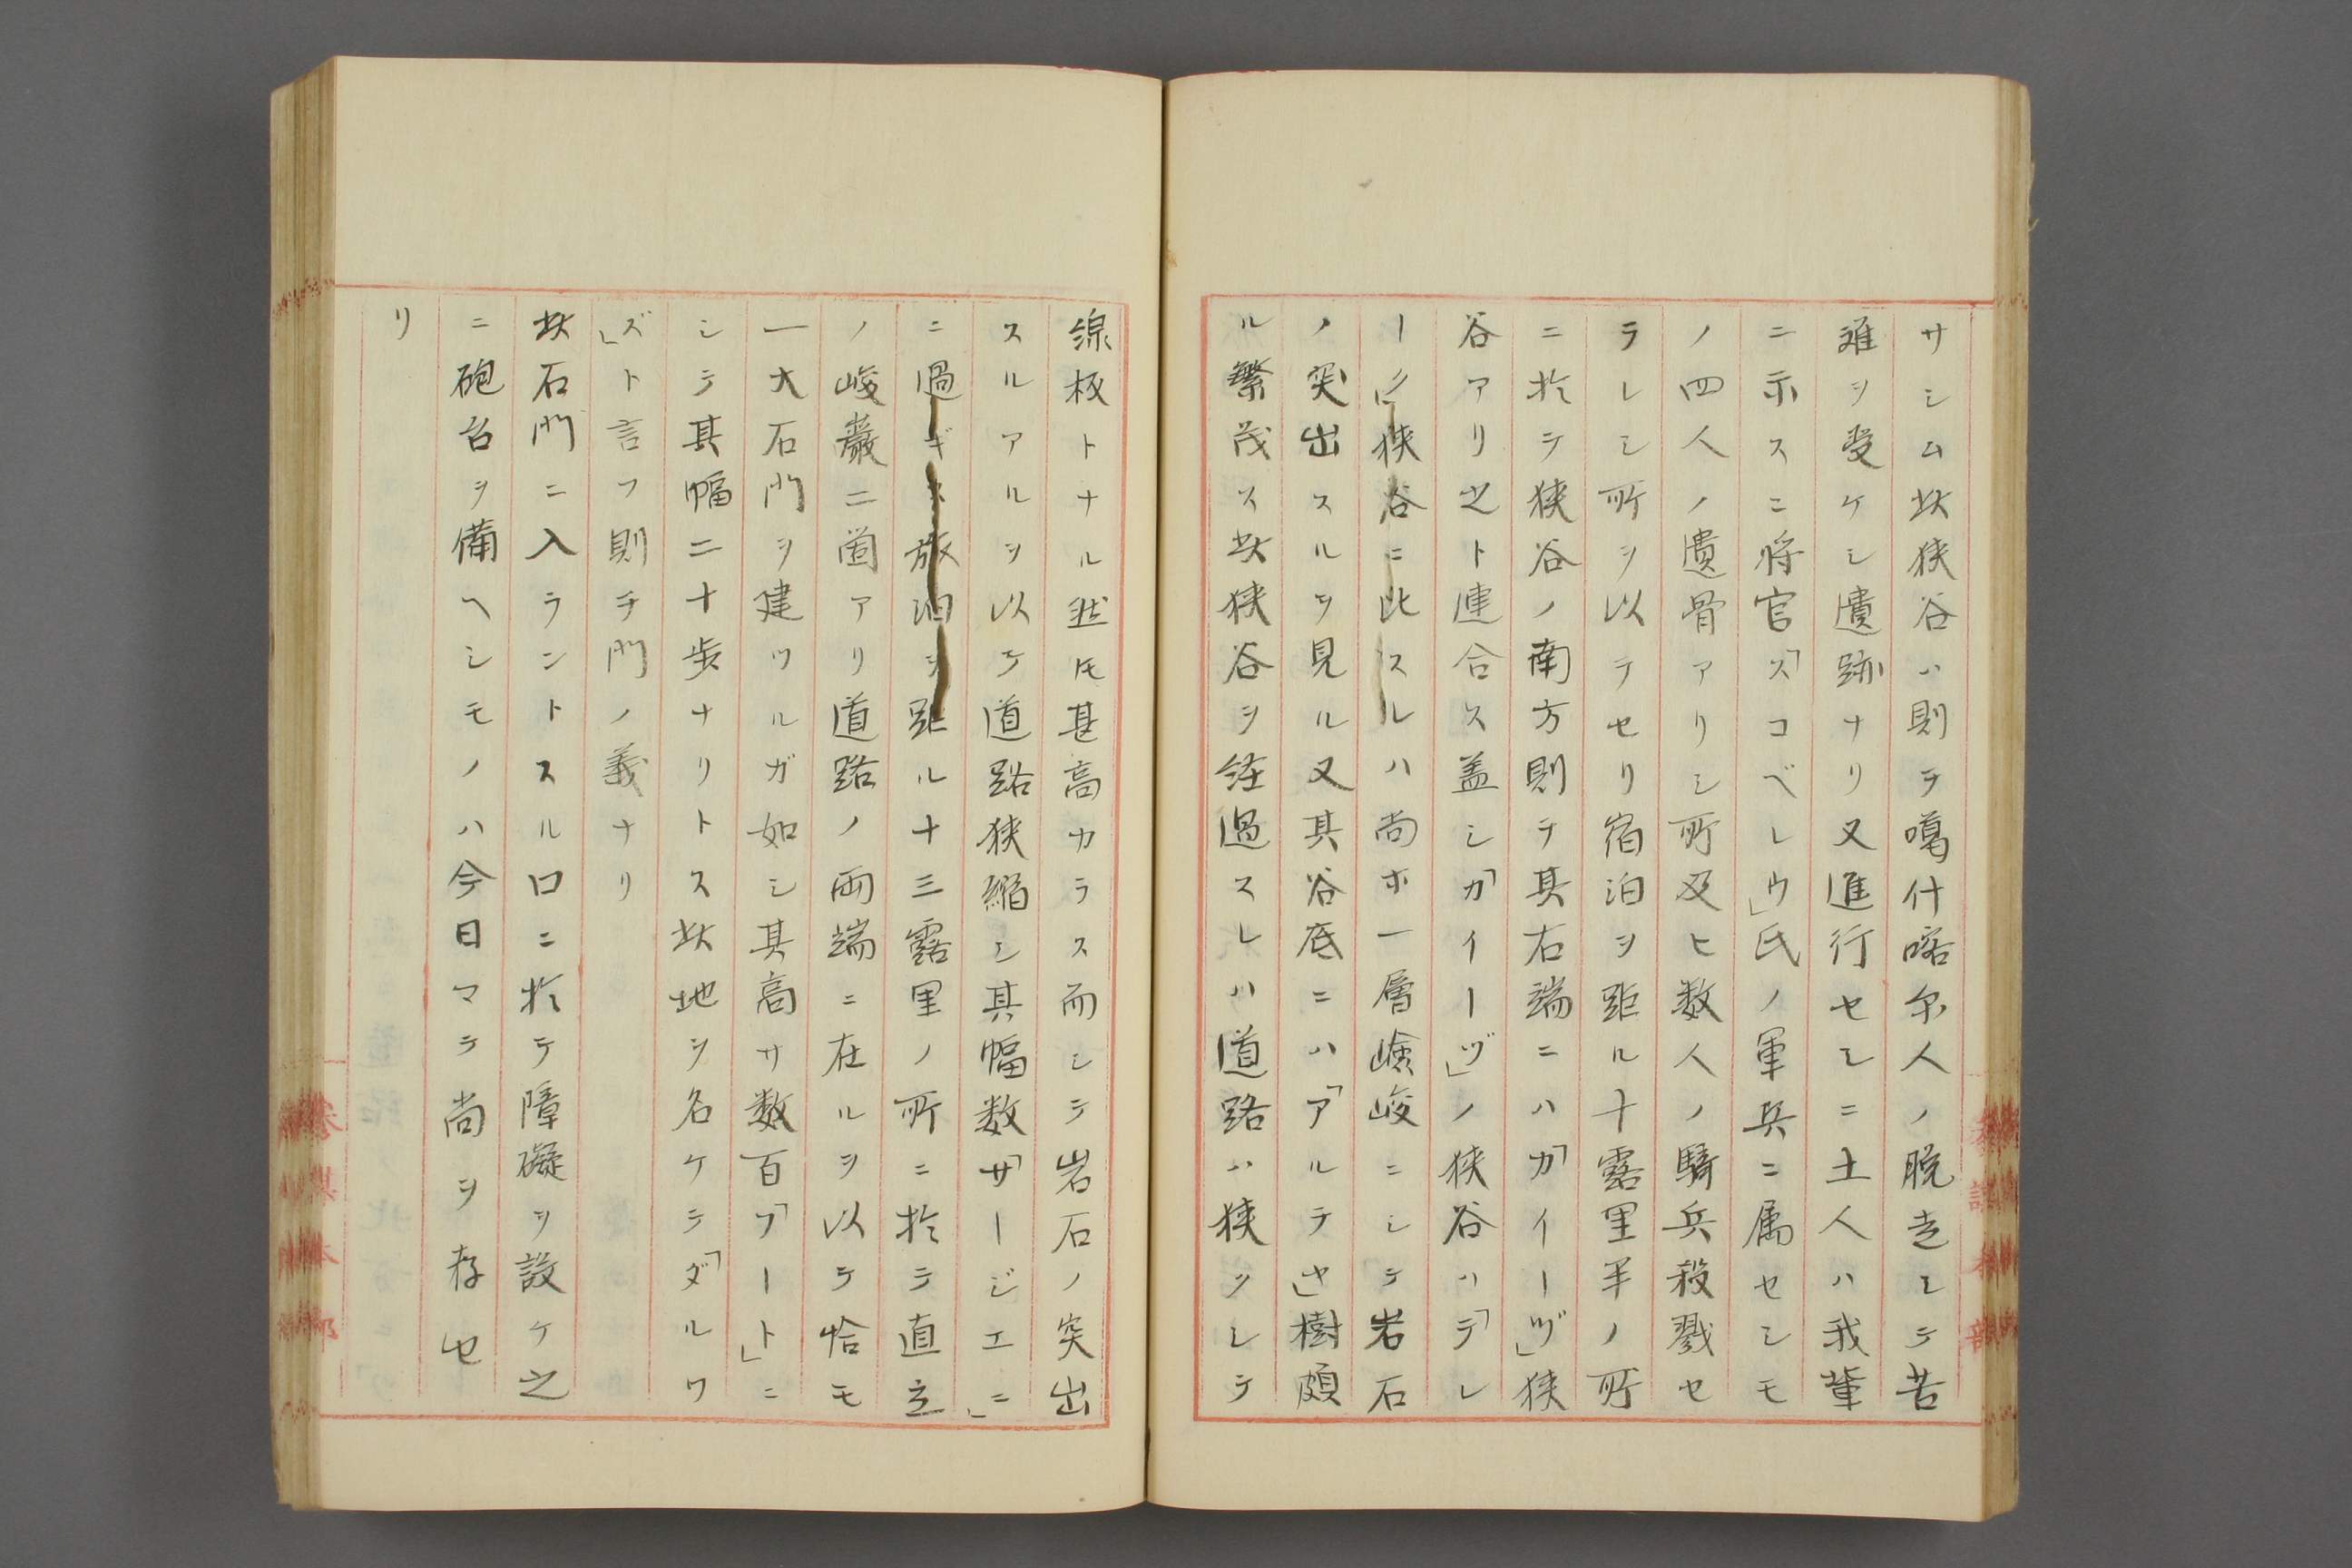 サシム此狭谷ハ則チ噶什喀尓人ノ脱走シテ苦
難ヲ受ケシ遺跡ナリ又進行セシニ土人ハ我輩
ニ示スニ将官「スコベレウ」氏ノ軍兵ニ属セシモ
ノ四人ノ遺骨アリシ所及ヒ数人ノ騎兵殺戮セ
ラレシ所ヲ以テセリ宿泊ヲ距ル十露里半ノ所
ニ於テ狭谷ノ南方則チ其右端ニハ「カイーヅ」狭
谷アリ之ト連合ス盖シ「カイーヅ」ノ狭谷ハ「テレ
ーク」狭谷ニ比スルハ尚ホ一層嶮峻ニシテ岩石
ノ突出スルヲ見ル又其谷底ニハ「アルチヤ」樹頗
ル繁茂ス此狭谷ヲ経過スレハ道路ハ狭クシテ
線板トナル然𪜈甚高カラス而シテ岩石ノ突出
スルアルヲ以テ道路狭縮シ其幅数「サージエ」ニ
ニ過ギス旅泊ヲ距ル十三露里ノ所ニ於テ直立
ノ峻巖二箇アリ道路ノ両端ニ在ルヲ以テ恰モ
一大石門ヲ建ツルガ如シ其高サ数百「フート」ニ
シテ其幅二十歩ナリトス此地ヲ名ケテ「ダルワ
ズ」ト言フ則チ門ノ義ナリ
此石門ニ入ラントスル口ニ於テ障礙ヲ設ケ之
ニ砲台ヲ備ヘシモノハ今日マテ尚ヲ存セ
リ
参謀本部
参謀本部